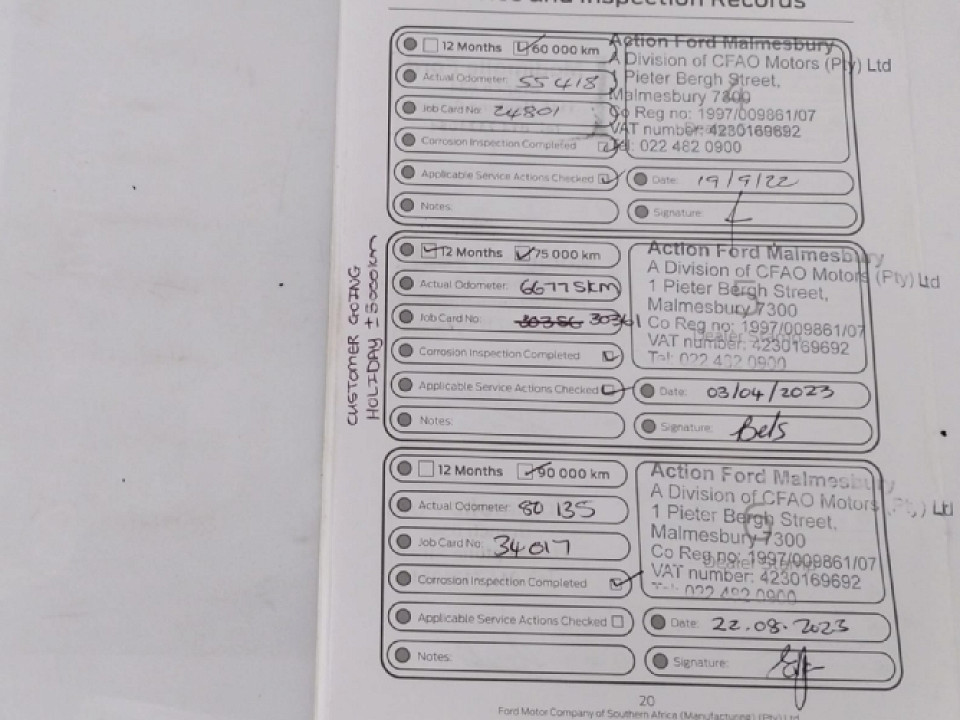 and Inspection Records
12 Months 60 000 km
Actual Odometer: 55 418
Job Card No: 24801
Corrosion Inspection Completed
Applicable Service Actions Checked
Notes:
Action Ford Malmesbury
A Division of CFAO Motors (Pty) Ltd
1 Pieter Bergh Street,
Malmesbury 7300
Co Reg no: 1997/009861/07
VAT number: 4230169692
Tel: 022 482 0900
Date: 19/9/22
Signature:
CUSTOMER GOING
HOLIDAY ±5000km
12 Months 75 000 km
Actual Odometer: 66775km
Job Card No: 30356 30361
Corrosion Inspection Completed
Applicable Service Actions Checked
Notes:
Action Ford Malmesbury
A Division of CFAO Motors (Pty) Ltd
1 Pieter Bergh Street,
Malmesbury 7300
Co Reg no: 1997/009861/07
VAT number: 4230169692
Tel: 022 482 0900
Date: 03/04/2023
Signature: Bels
12 Months 90 000 km
Actual Odometer: 80 135
Job Card No: 34017
Corrosion Inspection Completed
Applicable Service Actions Checked
Notes:
Action Ford Malmesbury
A Division of CFAO Motors (Pty) Ltd
1 Pieter Bergh Street,
Malmesbury 7300
Co Reg no: 1997/009861/07
VAT number: 4230169692
Tel: 022 482 0900
Date: 22.08.2023
Signature:
20
Ford Motor Company of Southern Africa (Manufacturing) (Pty) Ltd